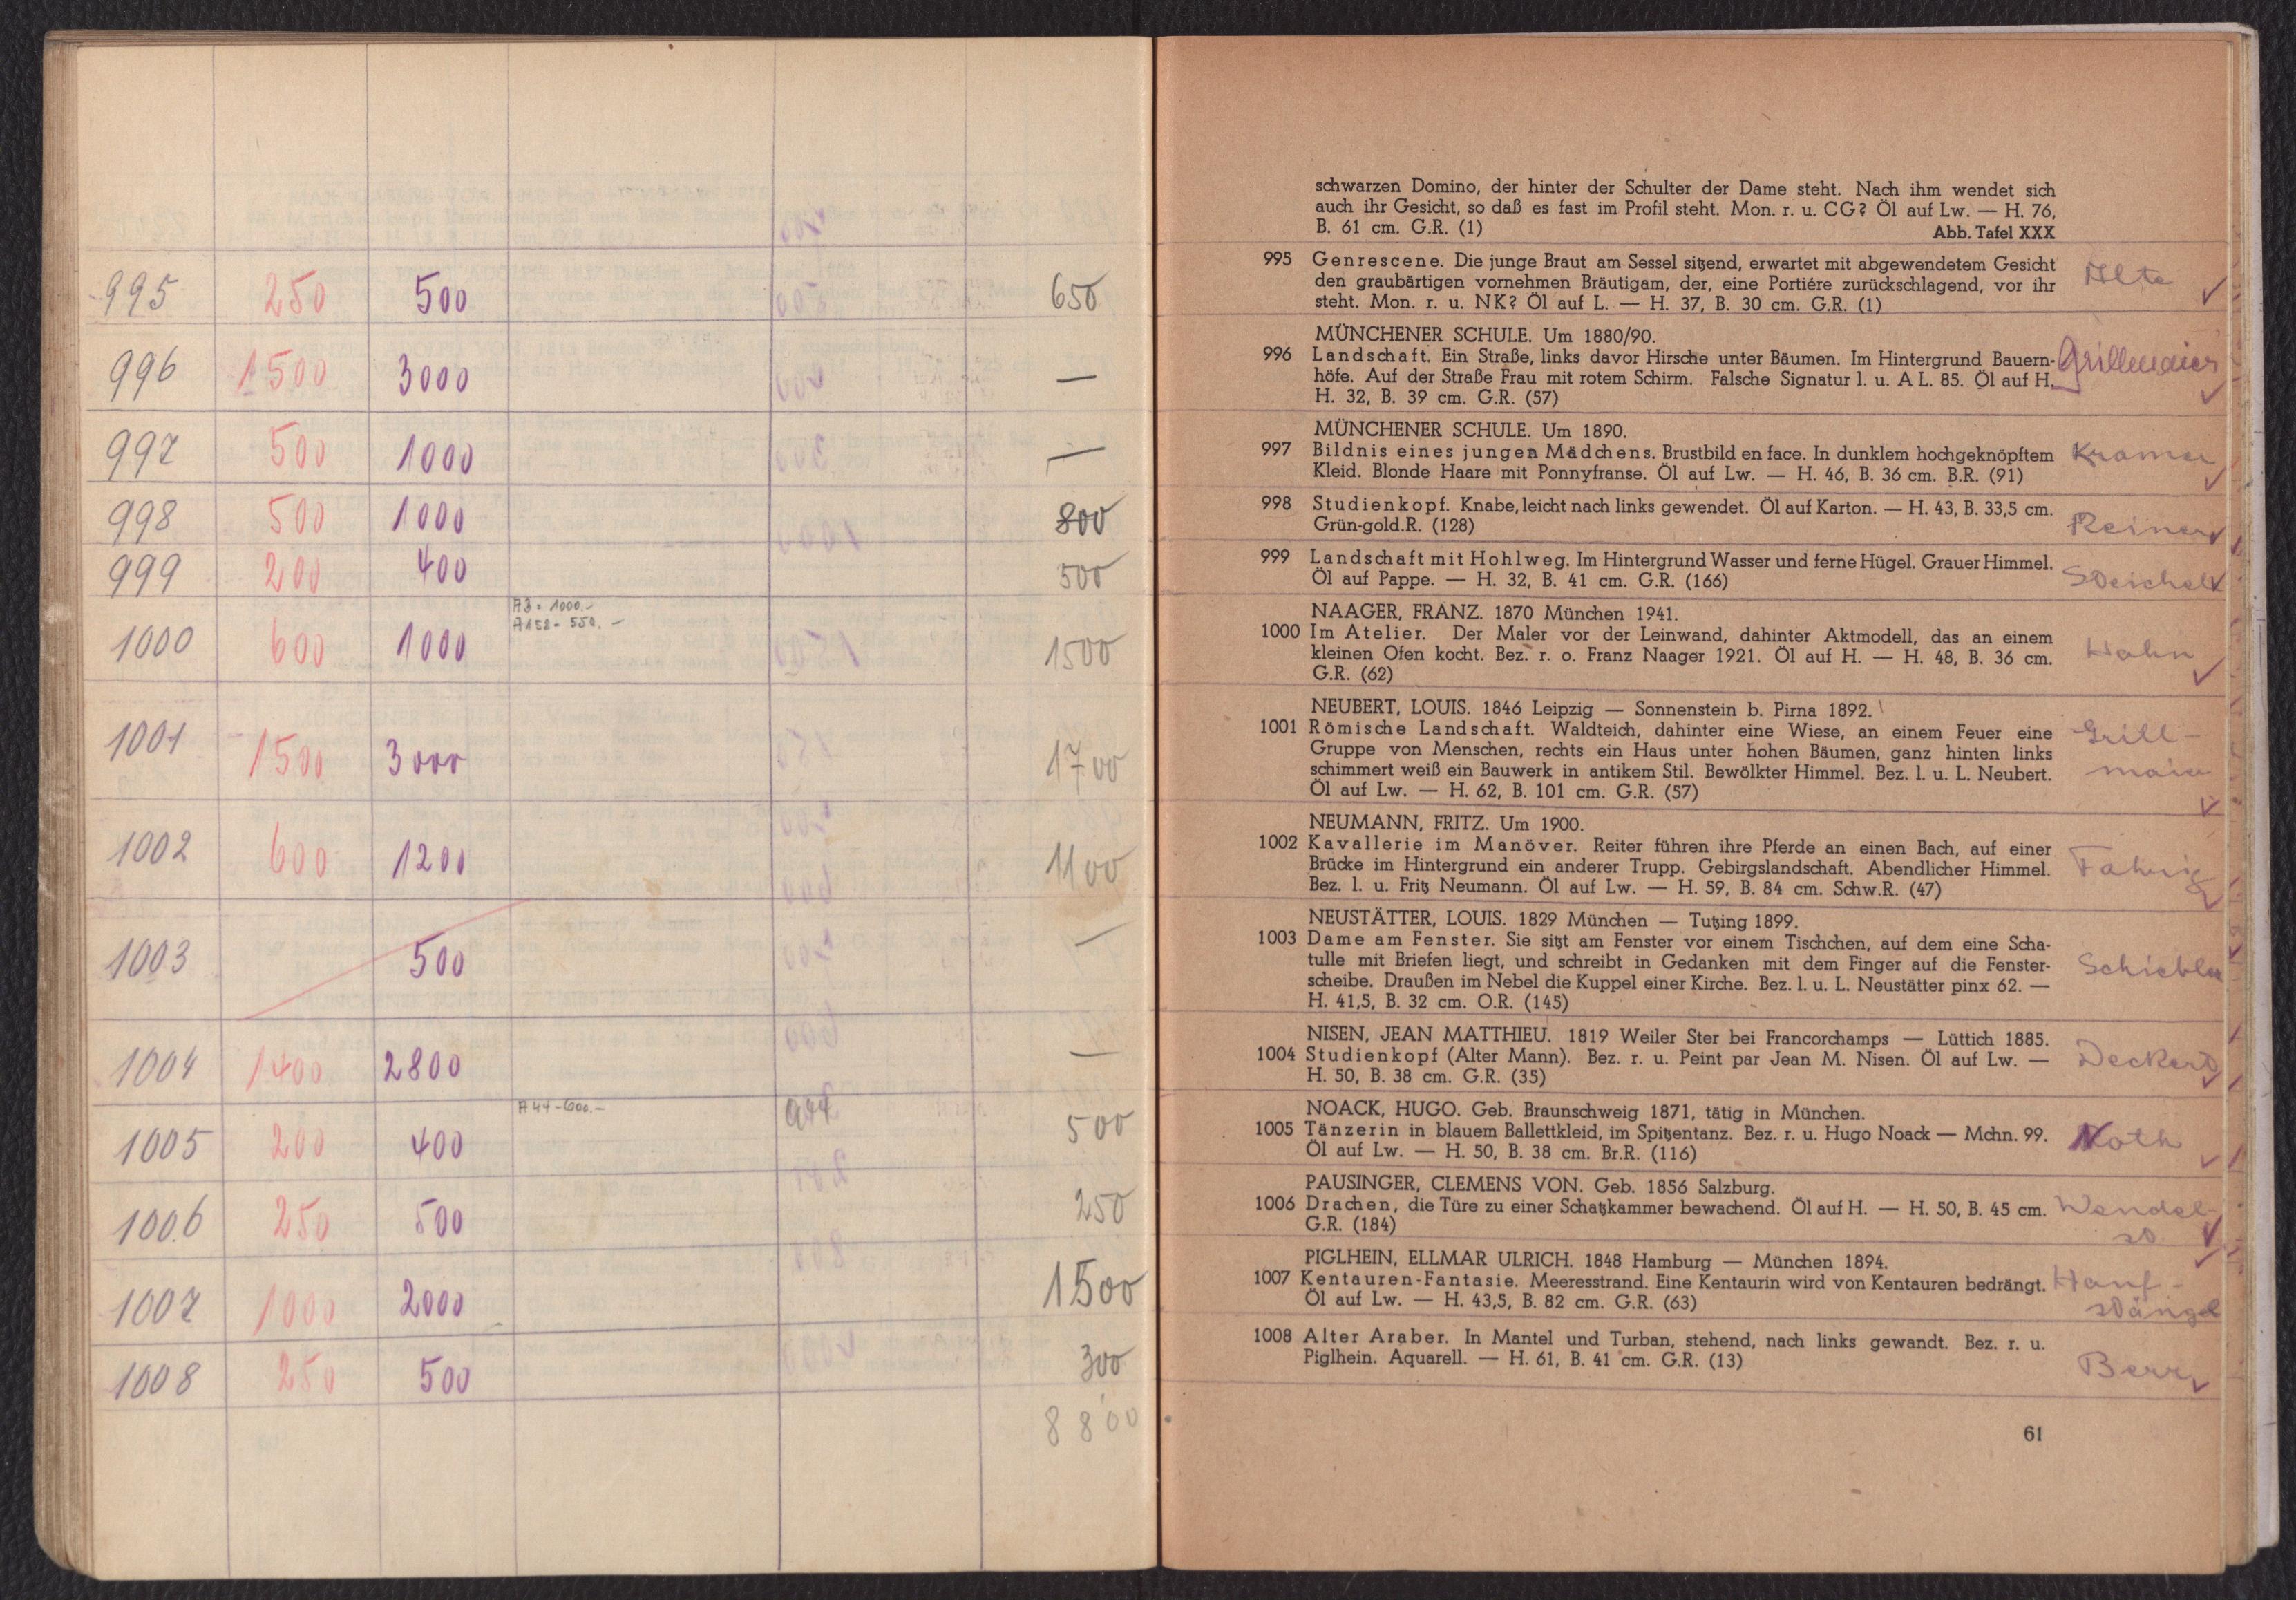 995 250 500 650
996 1500 3000 —
997 500 1000 —
998 500 1000 800
999 200 400 500
A3 = 1000.-
A152 - 550. -
1000 600 1000 1500
1001 1500 3000 1700
1002 600 1200 1100
1003 500 —
1004 1400 2800 —
A44-600.-
1005 200 400 500
1006 250 500 250
1007 1000 2000 1500
1008 250 500 300
8800
schwarzen Domino, der hinter der Schulter der Dame steht. Nach ihm wendet sich
auch ihr Gesicht, so daß es fast im Profil steht. Mon. r. u. CG? Öl auf Lw. — H. 76,
B. 61 cm. G.R. (1) Abb. Tafel XXX
995 Genrescene. Die junge Braut am Sessel sitzend, erwartet mit abgewendetem Gesicht
den graubärtigen vornehmen Bräutigam, der, eine Portiére zurückschlagend, vor ihr
steht. Mon. r. u. NK? Öl auf L. — H. 37, B. 30 cm. G.R. (1)
MÜNCHENER SCHULE. Um 1880/90.
996 Landschaft. Ein Straße, links davor Hirsche unter Bäumen. Im Hintergrund Bauern- Grillmaier
höfe. Auf der Straße Frau mit rotem Schirm. Falsche Signatur l. u. A L. 85. Öl auf H.
H. 32, B. 39 cm. G.R. (57)
MÜNCHENER SCHULE. Um 1890.
997 Bildnis eines jungen Mädchens. Brustbild en face. In dunklem hochgeknöpftem Kramer
Kleid. Blonde Haare mit Ponnyfranse. Öl auf Lw. — H. 46, B. 36 cm. B.R. (91)
998 Studienkopf. Knabe, leicht nach links gewendet. Öl auf Karton. — H. 43, B. 33,5 cm.
Grün-gold.R. (128) Reiner
999 Landschaft mit Hohlweg. Im Hintergrund Wasser und ferne Hügel. Grauer Himmel.
Öl auf Pappe. — H. 32, B. 41 cm. G.R. (166)
NAAGER, FRANZ. 1870 München 1941.
1000 Im Atelier. Der Maler vor der Leinwand, dahinter Aktmodell, das an einem
kleinen Ofen kocht. Bez. r. o. Franz Naager 1921. Öl auf H. — H. 48, B. 36 cm. Hahn
G.R. (62)
NEUBERT, LOUIS. 1846 Leipzig — Sonnenstein b. Pirna 1892.
1001 Römische Landschaft. Waldteich, dahinter eine Wiese, an einem Feuer eine Grill-
Gruppe von Menschen, rechts ein Haus unter hohen Bäumen, ganz hinten links
schimmert weiß ein Bauwerk in antikem Stil. Bewölkter Himmel. Bez. l. u. L. Neubert. maier
Öl auf Lw. — H. 62, B. 101 cm. G.R. (57)
NEUMANN, FRITZ. Um 1900.
1002 Kavallerie im Manöver. Reiter führen ihre Pferde an einen Bach, auf einer
Brücke im Hintergrund ein anderer Trupp. Gebirgslandschaft. Abendlicher Himmel.
Bez. l. u. Fritz Neumann. Öl auf Lw. — H. 59, B. 84 cm. Schw.R. (47)
NEUSTÄTTER, LOUIS. 1829 München — Tutzing 1899.
1003 Dame am Fenster. Sie sitzt am Fenster vor einem Tischchen, auf dem eine Scha-
tulle mit Briefen liegt, und schreibt in Gedanken mit dem Finger auf die Fenster-
scheibe. Draußen im Nebel die Kuppel einer Kirche. Bez. l. u. L. Neustätter pinx 62. —
H. 41,5, B. 32 cm. O.R. (145)
NISEN, JEAN MATTHIEU. 1819 Weiler Ster bei Francorchamps — Lüttich 1885.
1004 Studienkopf (Alter Mann). Bez. r. u. Peint par Jean M. Nisen. Öl auf Lw. — Deckert
H. 50, B. 38 cm. G.R. (35)
NOACK, HUGO. Geb. Braunschweig 1871, tätig in München.
1005 Tänzerin in blauem Ballettkleid, im Spitzentanz. Bez. r. u. Hugo Noack — Mchn. 99.
Öl auf Lw. — H. 50, B. 38 cm. Br.R. (116)
PAUSINGER, CLEMENS VON. Geb. 1856 Salzburg.
1006 Drachen, die Türe zu einer Schatzkammer bewachend. Öl auf H. — H. 50, B. 45 cm.
G.R. (184)
PIGLHEIN, ELLMAR ULRICH. 1848 Hamburg — München 1894.
1007 Kentauren-Fantasie. Meeresstrand. Eine Kentaurin wird von Kentauren bedrängt. Hanf-
Öl auf Lw. — H. 43,5, B. 82 cm. G.R. (63) stängel
1008 Alter Araber. In Mantel und Turban, stehend, nach links gewandt. Bez. r. u.
Piglhein. Aquarell. — H. 61, B. 41 cm. G.R. (13) Berr
61